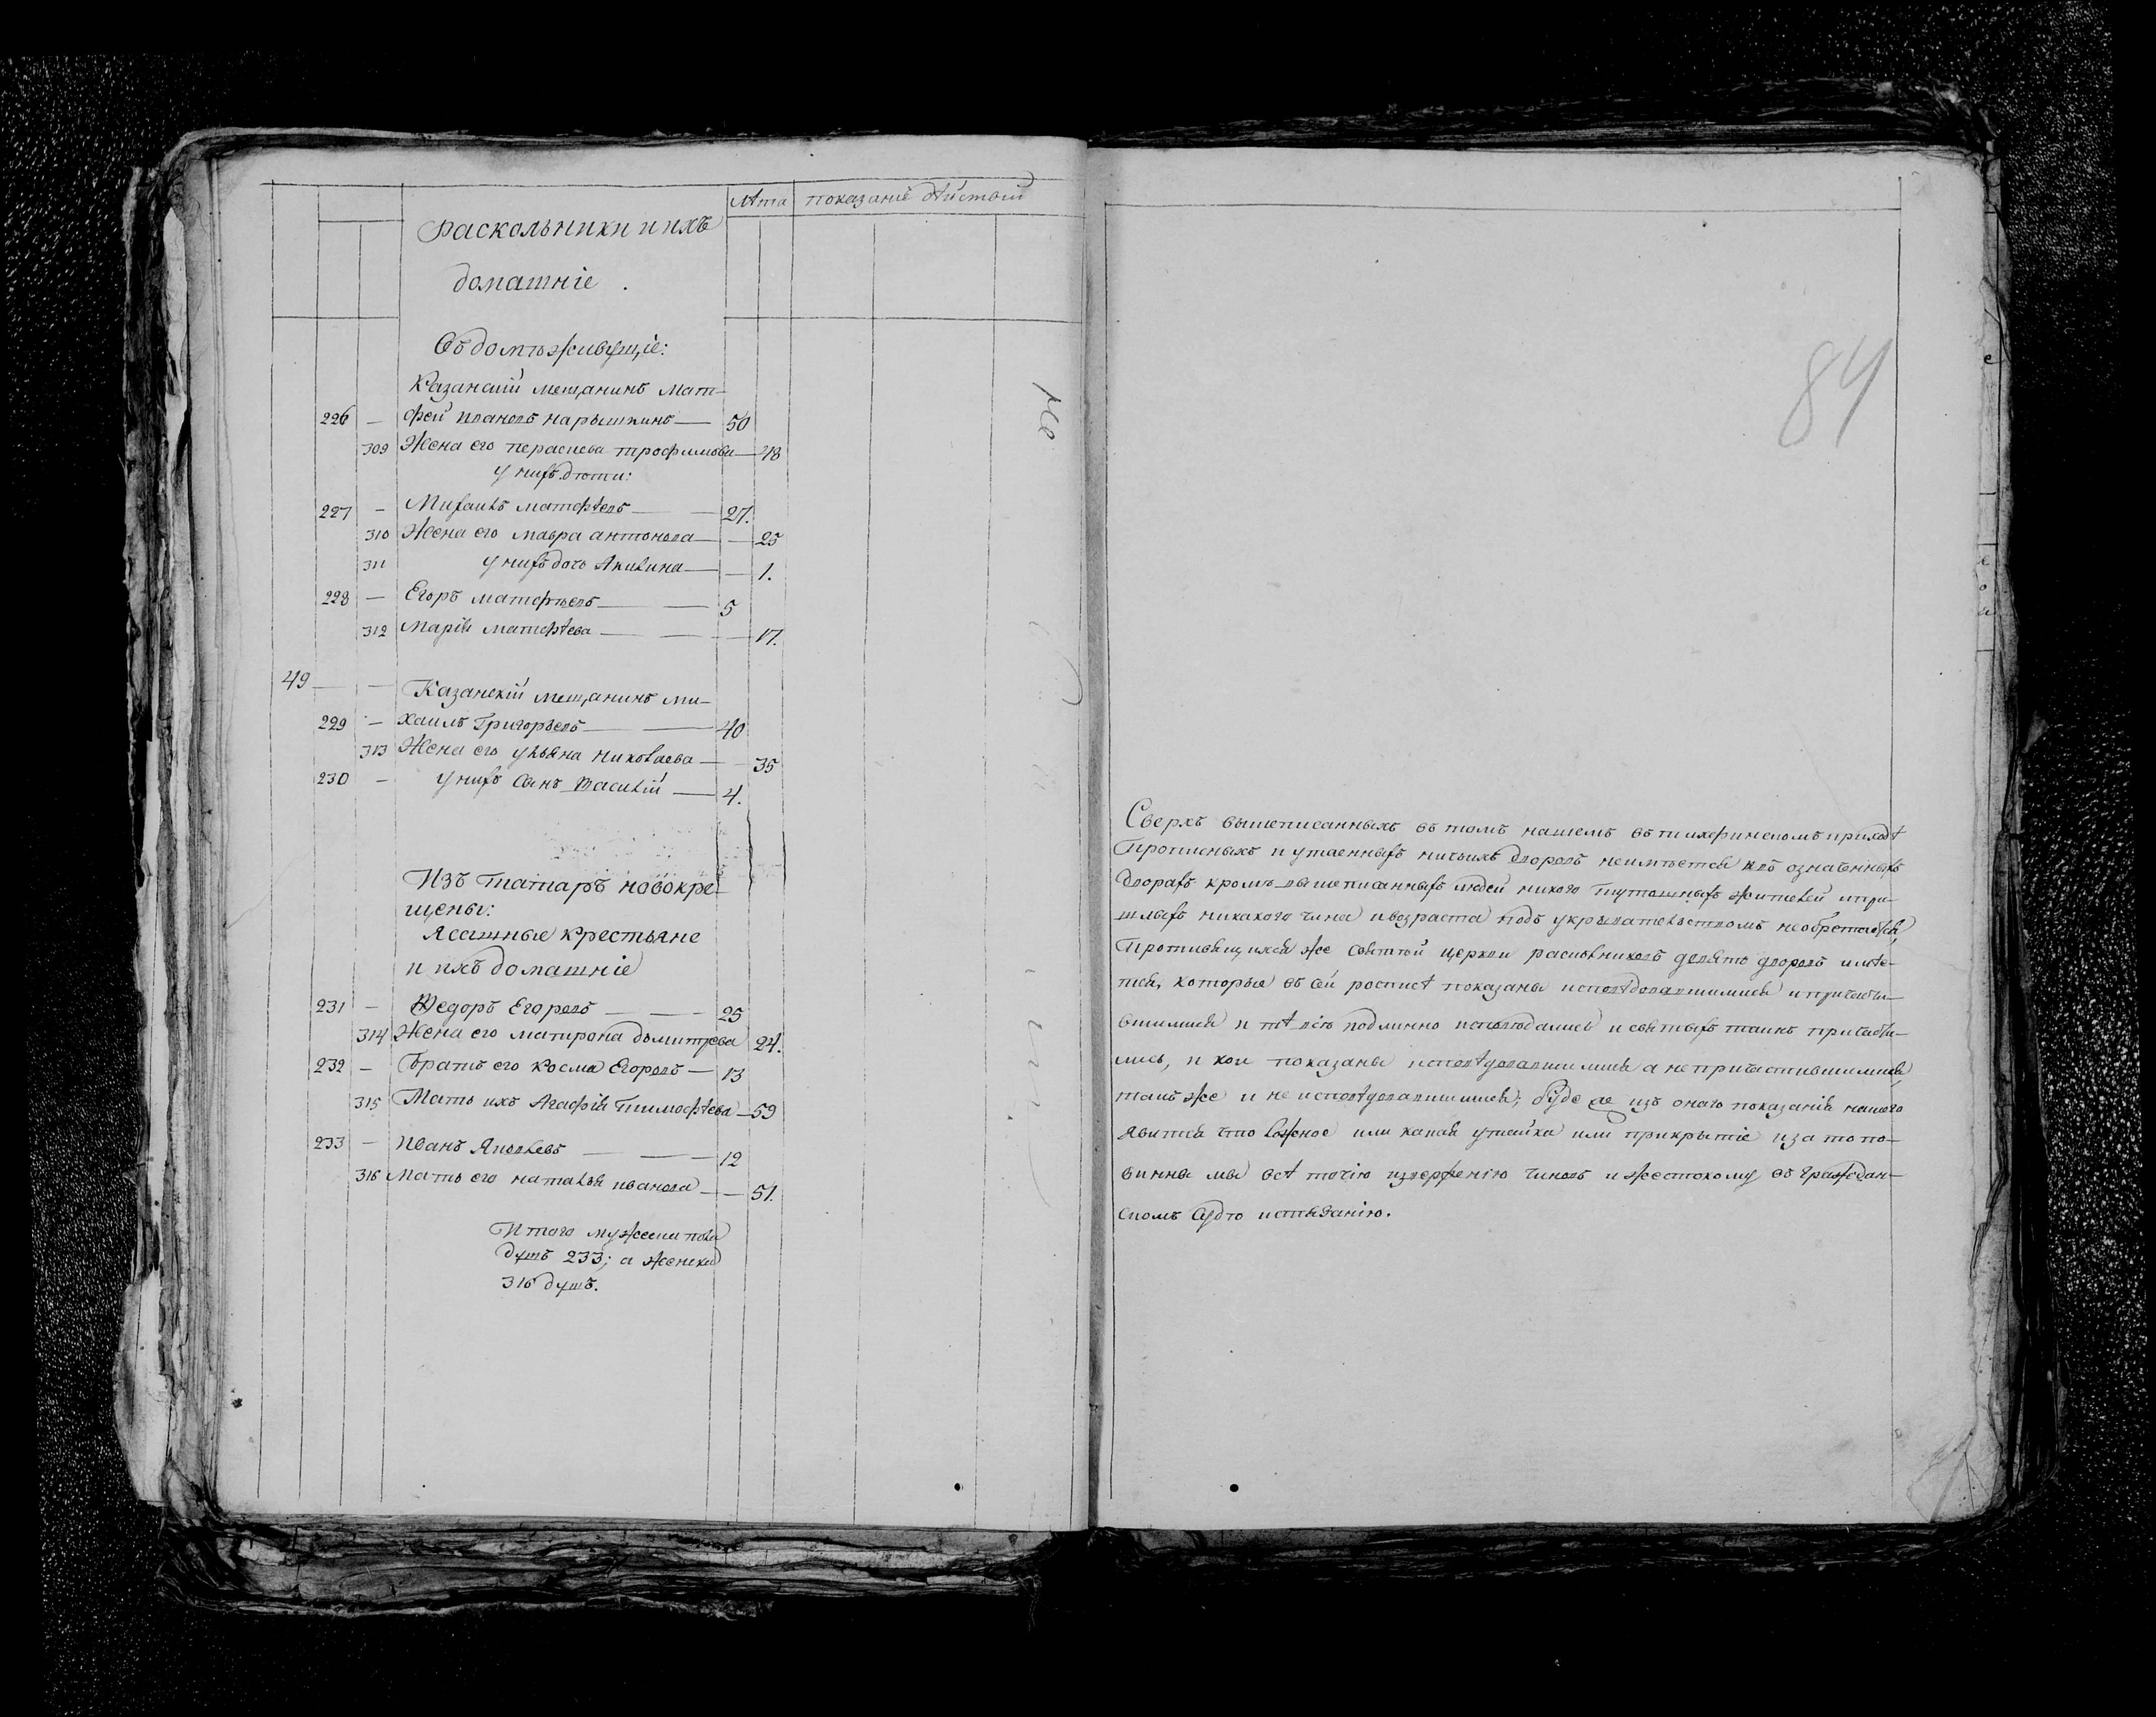 лѣта показаніе дѣйствій
раскольники и ихъ
домашніе.
Въ домѣ живущіе:
Казанскій мещанинъ Мат-
226 — фей Ивановъ Нарышкинъ — 50
309 Жена его Параскева Трофимова — 48
у нихъ дѣти:
227 — Михаилъ Матфѣевъ — 27.
310 Жена его Мавра Антонова — 25
311 у нихъ дочь Акилина — 1.
228 — Егоръ Матфѣевъ — 5
312 Марія Матфѣева — 17.
49 — — Казанскій мещанинъ Ми-
229 — хаилъ Григорьевъ — 40
313 Жена его Ульяна Николаева — 35
230 — у нихъ сынъ Василій — 4.
Изъ татаръ новокре-
щены:
Ясашные крестьяне
и ихъ домашніе
231 — Ѳедоръ Егоровъ — 25
314 Жена его Матрона Дъмитрева 24.
232 — Братъ его Косма Егоровъ — 13
315 Мать ихъ Агафія Тимофѣева — 59
233 — Иванъ Яковлевъ — 12
316 Мать его Наталья Иванова — 51.
Итого мужеска пола
душъ 233; а женска
316 душъ.
но
84
Сверхъ вышеписанныхъ въ томъ нашемъ въ тихфинскомъ приходѣ
прописныхъ и утаенныхъ ничьихъ дворовъ неимѣется и въ означенныхъ
дворахъ кромѣ вышеписанныхъ людей никого тутошныхъ жителей и при-
шлыхъ никакого чина и возраста подъ укрывательствомъ необретается,
Противящихся же святой церкви раскольниковъ девять дворовъ имѣе-
тся, которые въ сей росписѣ показаны исповѣдовавшимися и причасти-
вшимися и тѣ всѣ подлинно исповѣдались и святыхъ таинъ причасти-
лись, и кои показаны исповѣдовавшимися а непричастившимися,
такъ же и не исповѣдовавшимися; Буде же изъ онаго показанія нашего
явится что ложное или какая утайка или прикрытіе и за то по-
винны мы всѣ точію изверженію чиновъ и жестокому въ граждан-
скомъ судѣ истязанію.